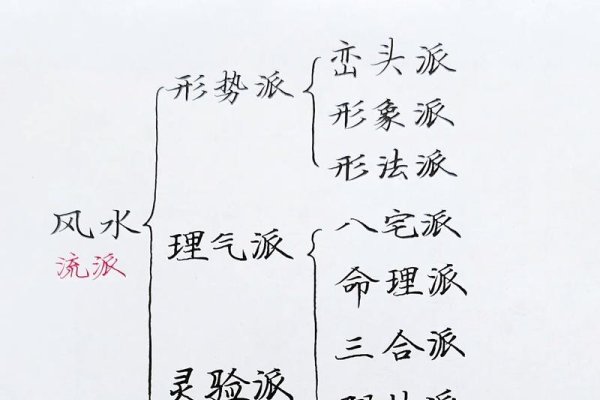 风水
流派
形势派
峦头派
形象派
形法派
理气派
八宅派
命理派
三合派
灵验派